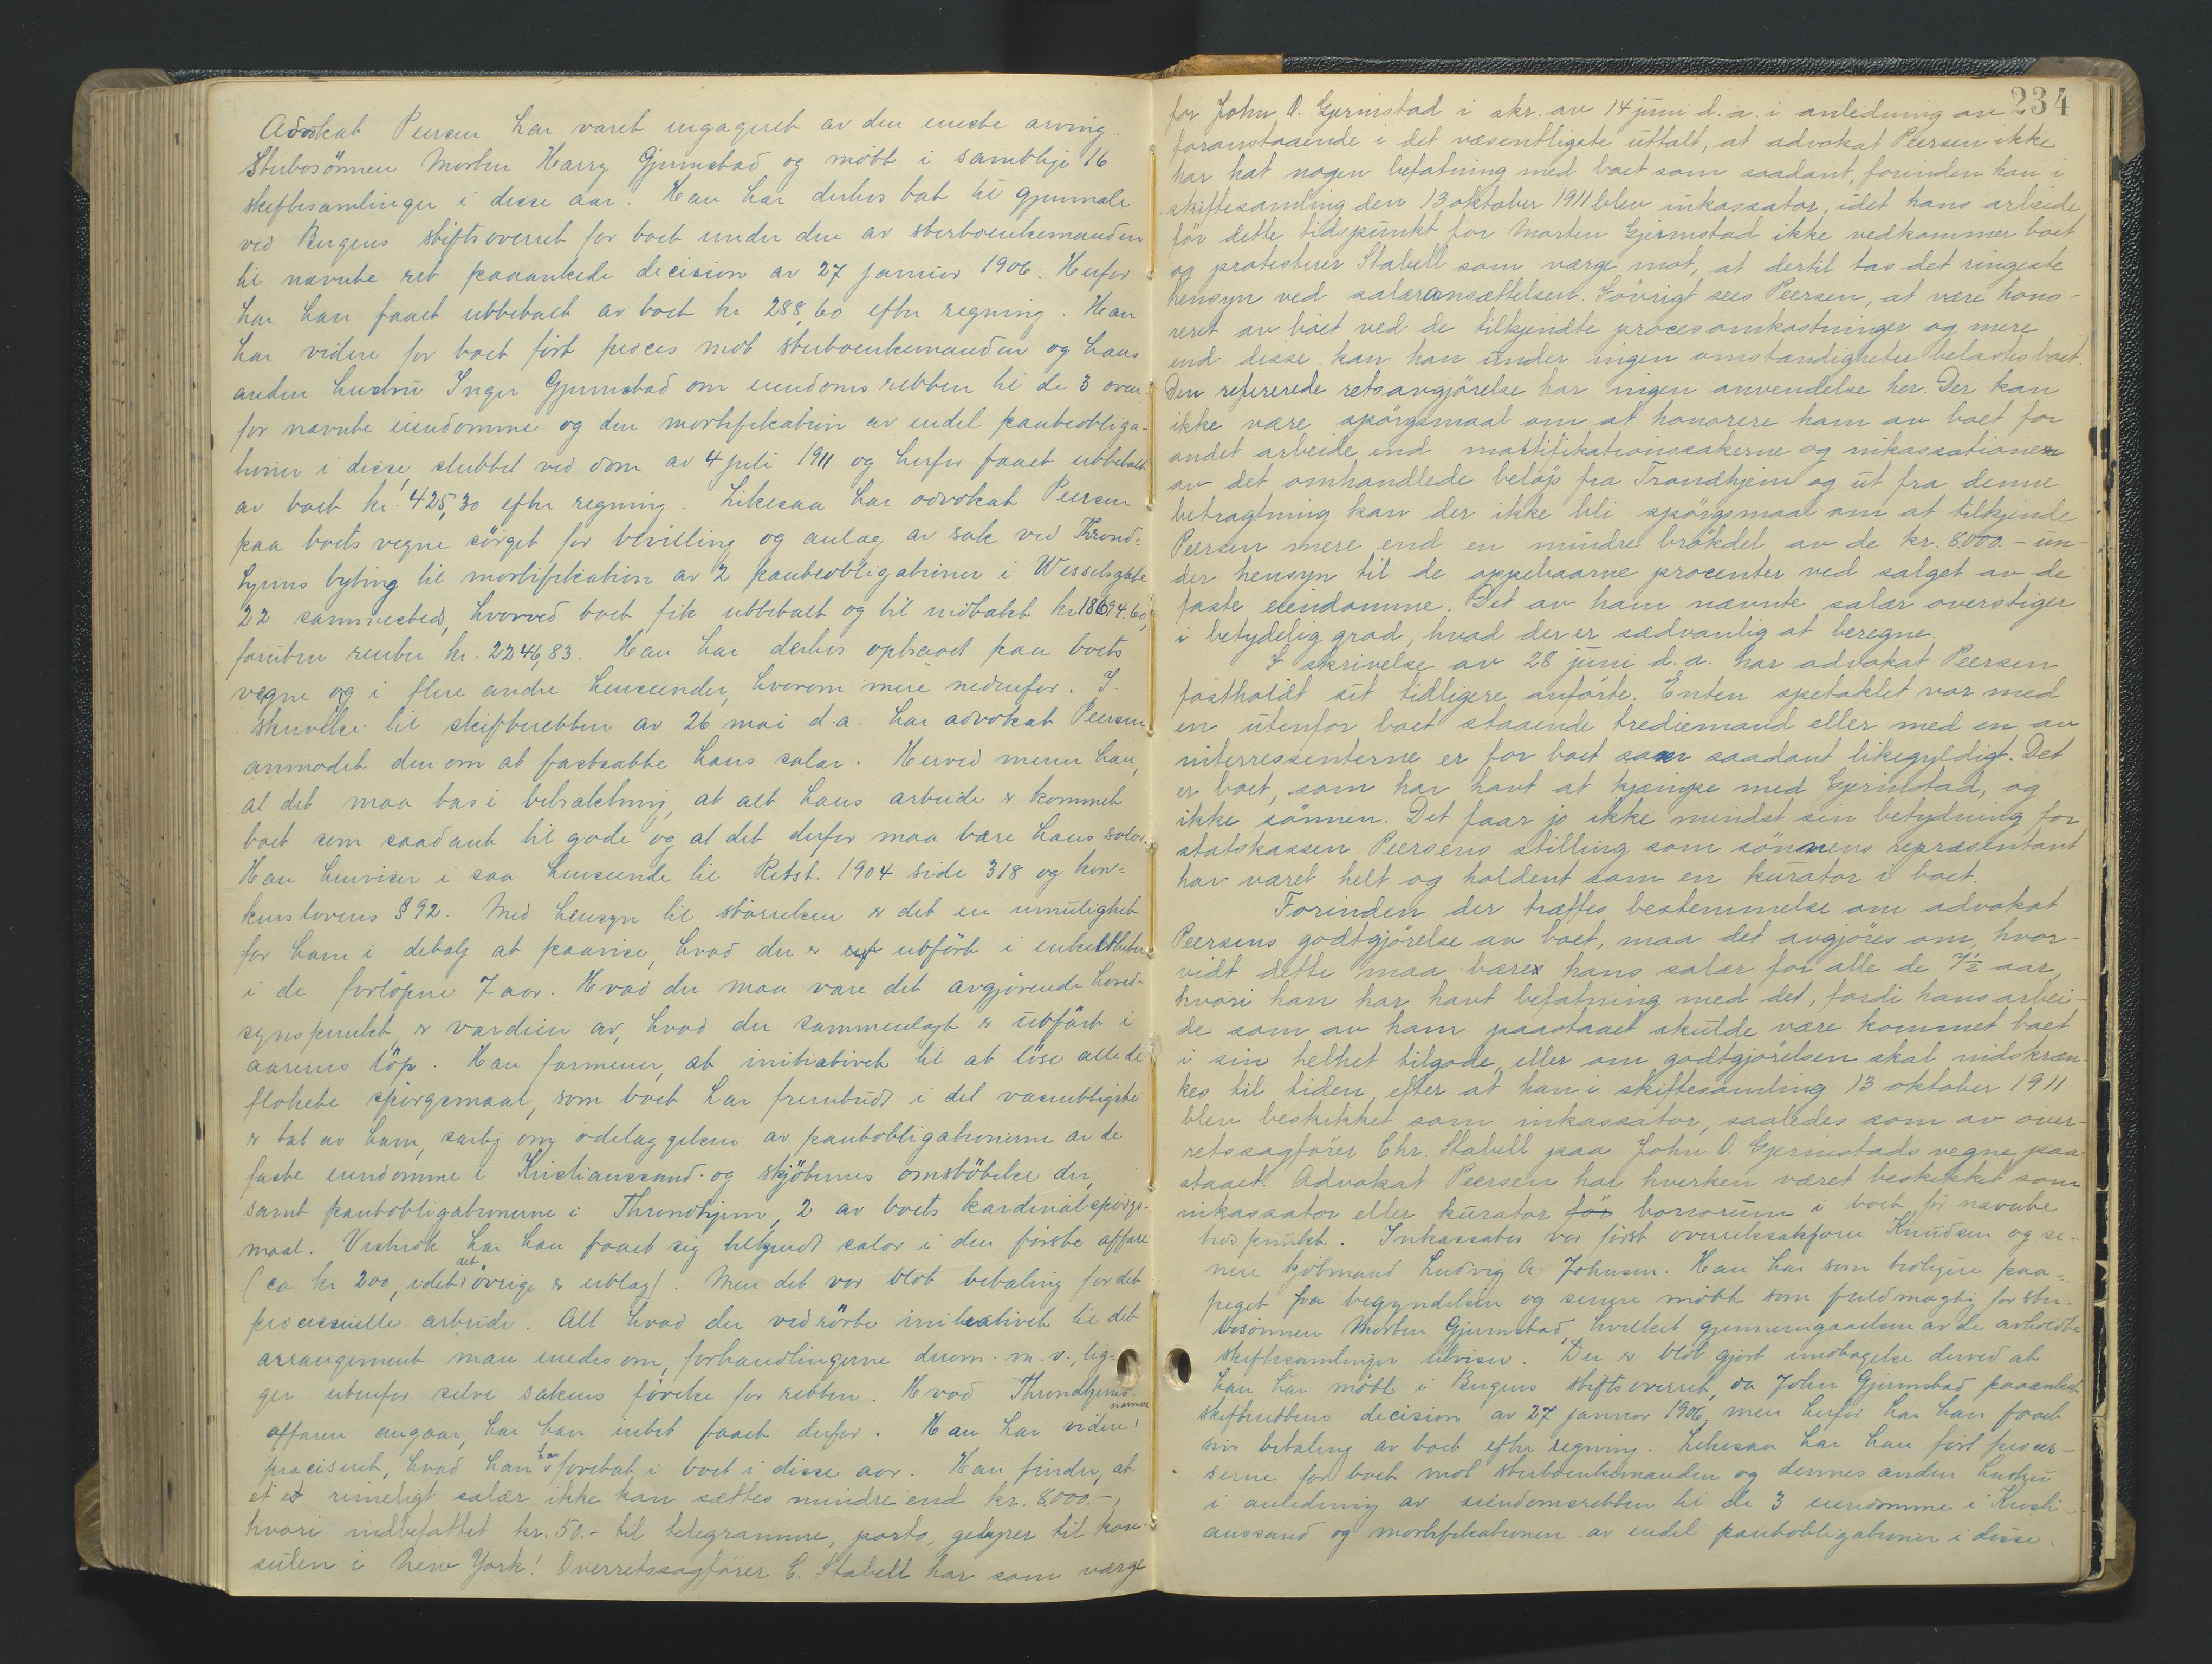 Advokat Peersen har været engageret av den eneste arving
Sterbosönnen Morten Harry Gjermstad og mött i samtlige 16
skiftesamlinger i disse aar. Han har derhos tat til gjenmæle
ved Bergens stiftsoverret for boet under den av sterboenkemanden
til nævnte ret paaankede decision av 27 januar 1906. Herfor
har han faaet utbetalt av boet kr 288,60 efter regning. Han
har videre for boet fört proces mot sterboenkemanden og hans
anden hustru Inger Gjermstad om eiendomsretten til de 3 oven-
for nævnte eiendomme og den mortifikation av endel panteobliga-
tioner i disse, sluttet ved dom av 4 juli 1911 og herfor faaet utbetalt
av boet kr. 425,30 efter regning. Likesaa har advokat Peersen
paa boets vegne sörget for bevilling og anlæg av sak ved Trond-
hjems byting til mortifikation av 2 panteobligationer i Wesselsgate
22 sammesteds, hvorved boet fik utbetalt og til indtækt kr 18694.60,
foruten renter kr. 2246,83. Han har derhos optraadt paa boets
vegne og i flere andre henseender, hvorom mere nedenfor. I
skrivelse til skifteretten av 26 mai d.a. har advokat Peersen
anmodet den om at fastsætte hans salær. Herved mener han,
at det maa tas i betraktning, at alt hans arbeide er kommet
boet som saadant til gode og at det derfor maa bære hans salær.
Han henviser i saa henseende til Retst. 1904 side 318 og kon-
kurslovens § 92. Med hensyn til störrelsen er det en umulighet
for ham i detalj at paavise, hvad der er utfört i enkeltheter
i de forlöpne 7 aar. Hvad der maa være det avgjörende hoved-
synspunkt, er værdien av, hvad der sammenlagt er utfört i
aarenes löp. Han formener, at initiativet til at löse alle de
flokete spörgsmaal, som boet har frembudt i det væsentligste
er tat av ham, særlig om ödelæggelsen av pantobligationerne av de
faste eiendomme i Kristianssand og skjöternes omstötelse der,
samt pantobligationerne i Throndhjem, 2 av boets kardinalspörgs-
maal. Vistnok har han faaet sig tilkjendt salær i den förste affære
(ca kr 200, idet det övrige er utlæg). Men det var blot betaling for det
processuelle arbeide. Alt hvad der vedrörte initiativet til det
arrangement man enedes om, forhandlingerne derom m.v., lig-
ger utenfor selve sakens förelse for retten. Hvad Throndhjems-
affæren angaar, har han intet faaet derfor. Han har videre nærmere
præciseret, hvad han har foretat i boet i disse aar. Han finder, at
et et rimeligt salær ikke kan sættes mindre end kr. 8.000.-,
hvori indbefattet kr. 50.- til telegramme, porto, gebyrer til kon-
sulen i New York! Overretssagförer C. Stabell har som værge
234
for John O. Gjermstad i skr. av 14 juni d.a. i anledning av
foranstaaende i det væsentligste uttalt, at advokat Peersen ikke
har hat nogen befatning med boet som saadant, forinden han i
skiftesamling den 13 oktober 1911 blev inkassator, idet hans arbeide
för dette tidspunkt for Morten Gjermstad ikke vedkommer boet
og protesterer Stabell som værge mot, at dertil tas det ringeste
hensyn ved salæransættelsen. Iövrigt sees Peersen, at være hono-
reret av boet ved de tilkjendte procesomkostninger og mere
end disse kan han under ingen omstændigheter belastes boet.
Den refererede retsavgjörelse har ingen anvendelse her. Der kan
ikke være spörgsmaal om at honorere ham av boet for
andet arbeide end mortifikationssakerne og inkassationen
av det omhandlede belöp fra Trondhjem og ut fra denne
betragtning kan der ikke bli spörgsmaal om at tilkjende
Peersen mere end en mindre brökdel av de kr. 8.000.- un-
der hensyn til de oppebaarne procenter ved salget av de
faste eiendomme. Det av ham nævnte salær overstiger
i betydelig grad, hvad der er sædvanlig at beregne.
I skrivelse av 28 juni d.a. har advokat Peersen
fastholdt sit tidligere anförte. Enten spetaklet var med
en utenfor boet staaende trediemand eller med en av
interressenterne er for boet som saadant likegyldigt. Det
er boet, som har havt at kjæmpe med Gjermstad, og
ikke sönnen. Det faar jo ikke mindst sin betydning for
statskassen. Peersens stilling som sönnens repræsentant
har været helt og holdent som en kurator i boet.
Forinden der træffes bestemmelse om advokat
Peersens godtgjörelse av boet, maa det avgjöres om, hvor-
vidt dette maa bære hans salær for alle de 7½ aar,
hvori han har havt befatning med det, fordi hans arbei-
de som av ham paastaaet skulde være kommet boet
i sin helhet tilgode, eller om godtgjörelsen skal indskræn-
kes til tiden, efter at han i skiftesamling 13 oktober 1911
blev beskikket som inkassator, saaledes som av over-
retssagförer Chr. Stabell paa John O. Gjermstads vegne paa-
staaet. Advokat Peersen har hverken været beskikket som
inkassator eller kurator för bonorum i boet för nævnte
tidspunkt. Inkassator var först overretssakförer Knudsen og se-
nere kjöbmand Ludvig A. Johnsen. Han har som tidligere paa-
peget fra begyndelsen og senere mött som fuldmægtig for ster-
bosönnen Morten Gjermstad, hvilket gjennemgaaelsen av de avholdte
skiftesamlinger utviser. Der er blot gjort undtagelse derved at
han har mött i Bergens stiftsoverret, da John Gjermstad paaanket
skifterettens decision av 27 januar 1906, men herfor har han faaet
sin betaling av boet efter regning. Likesaa har han fört proces-
serne for boet mot sterboenkemanden og dennes anden hustru
i anledning av eiendomsretten til de 3 eiendomme i Kristi-
anssand og mortifikationen av endel pantobligationer i disse.